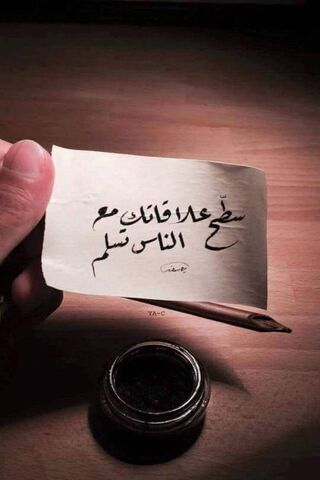 سطّح علاقاتك مع
الناس تسلم
YA-C